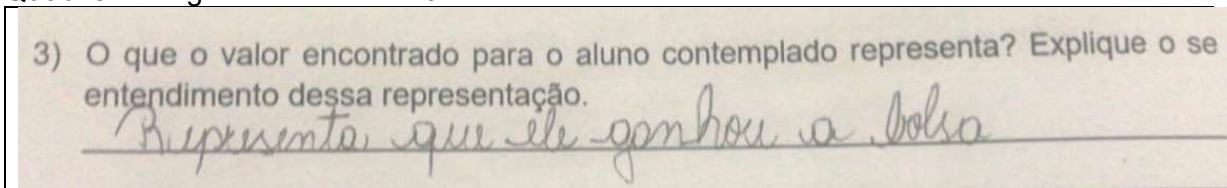 3) O que o valor encontrado para o aluno contemplado representa? Explique o se
entendimento dessa representação.
Representa que ele ganhou a bolsa